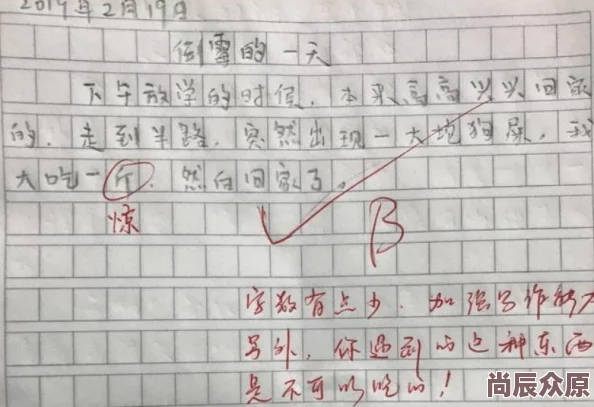 2019年2月19日
倒霉的一天
下午放学的时候，本来高高兴兴回家
的，走到半路，突然出现一大坨狗屎，我
大吃一斤，然后回家了。
惊
B
字数有点少，加强写作能力
另外，你遇到的这种东西
是不可以吃的！
尚辰众原